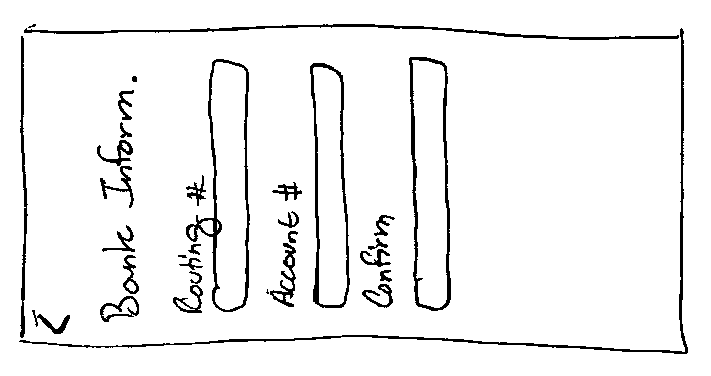 Bank Inform.
Routing #
Account #
Confirm